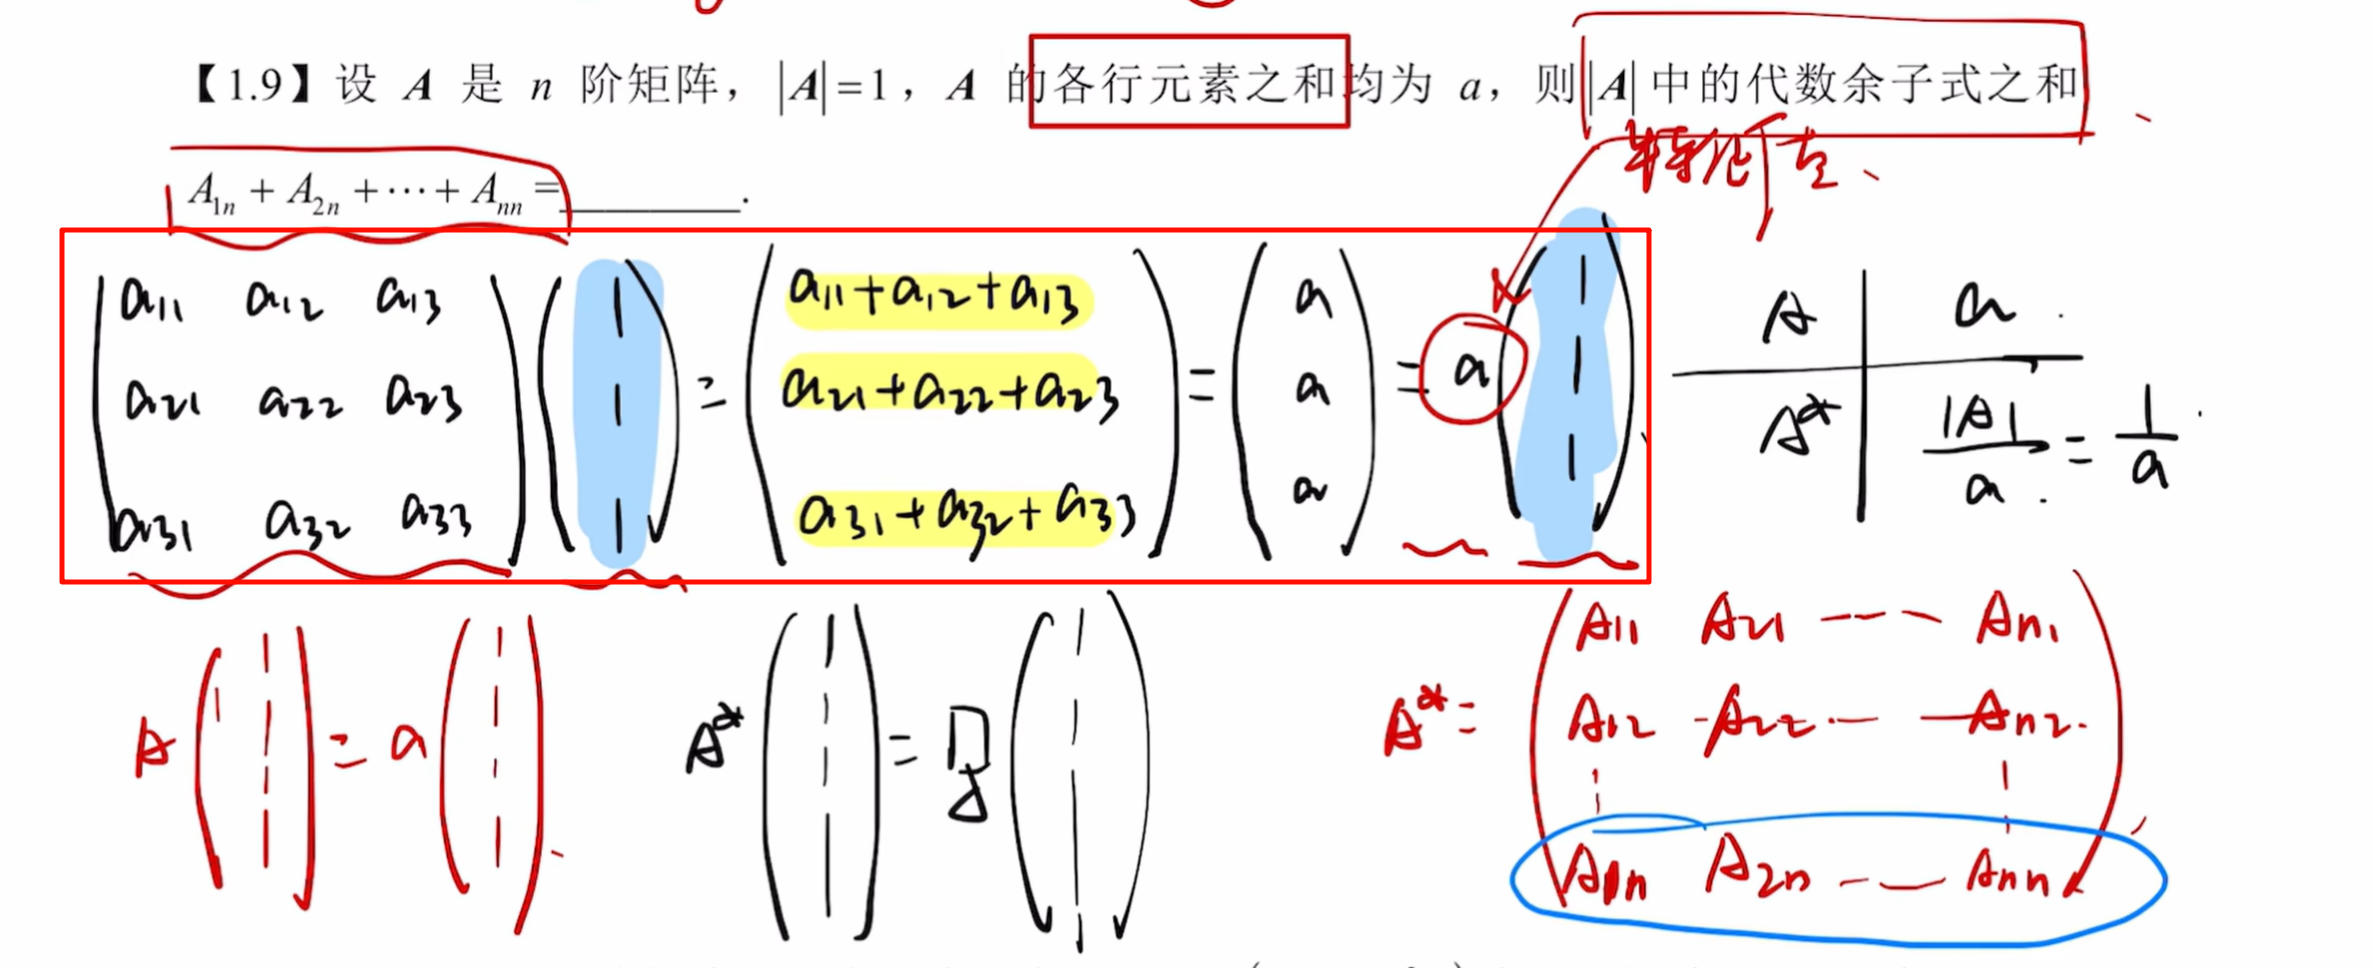 【1.9】设 A 是 n 阶矩阵，|A|=1，A 的各行元素之和均为 a，则|A|中的代数余子式之和
A₁ₙ + A₂ₙ + ⋯ + Aₙₙ = ________.
特征值
a₁₁ a₁₂ a₁₃
a₂₁ a₂₂ a₂₃
a₃₁ a₃₂ a₃₃
1
1
1
=
a₁₁+a₁₂+a₁₃
a₂₁+a₂₂+a₂₃
a₃₁+a₃₂+a₃₃
=
a
a
a
= a
1
1
1
A a
A* |A|/a = 1/a
A (1 ⋮ 1) = a (1 ⋮ 1)
A* (1 ⋮ 1) = (1 ⋮ 1)
A* =
A₁₁ A₂₁ --- Aₙ₁
A₁₂ A₂₂ --- Aₙ₂
⋮ ⋮
A₁ₙ A₂ₙ --- Aₙₙ